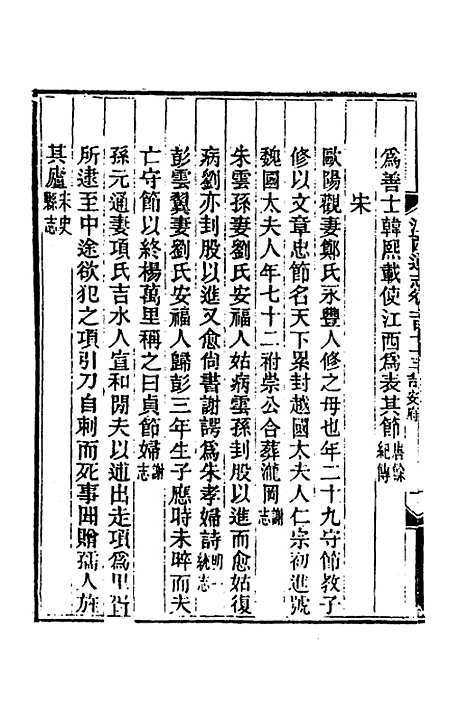 爲善士韓熙載使江西爲表其節唐餘紀傳
宋
歐陽觀妻鄭氏永豐人修之母也年二十九守節教子
修以文章忠節名天下累封越國太夫人仁宗初進號
魏國太夫人年七十二附崇公合葬瀧岡謝志
朱雲孫妻劉氏安福人姑病雲孫刲股以進而愈姑復
病劉亦刲股以進又愈尚書謝諤爲朱孝婦詩明一統志
彭雲翼妻劉氏安福人歸彭三年生子應時未晬而夫
亡守節以終楊萬里稱之曰貞節婦謝志
孫元通妻項氏吉水人宣和閒夫以逋出走項爲里胥
所逮至中途欲犯之項引刀自刺而死事聞贈孺人旌
其廬宋史縣志
江西通志卷一百 吉安府